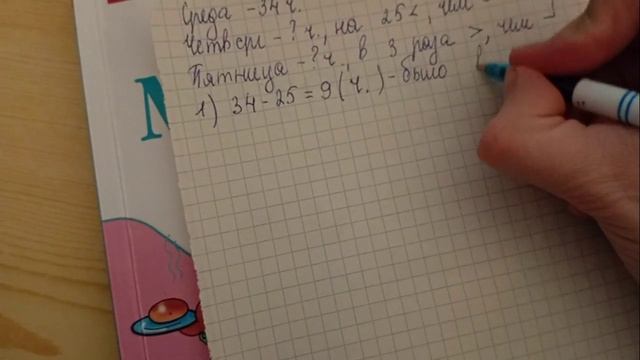 Среда - 34 ч.
Четверг - ? ч., на 25 <, чем
Пятница - ? ч., в 3 раза >, чем
1) 34 - 25 = 9 (ч.) - было